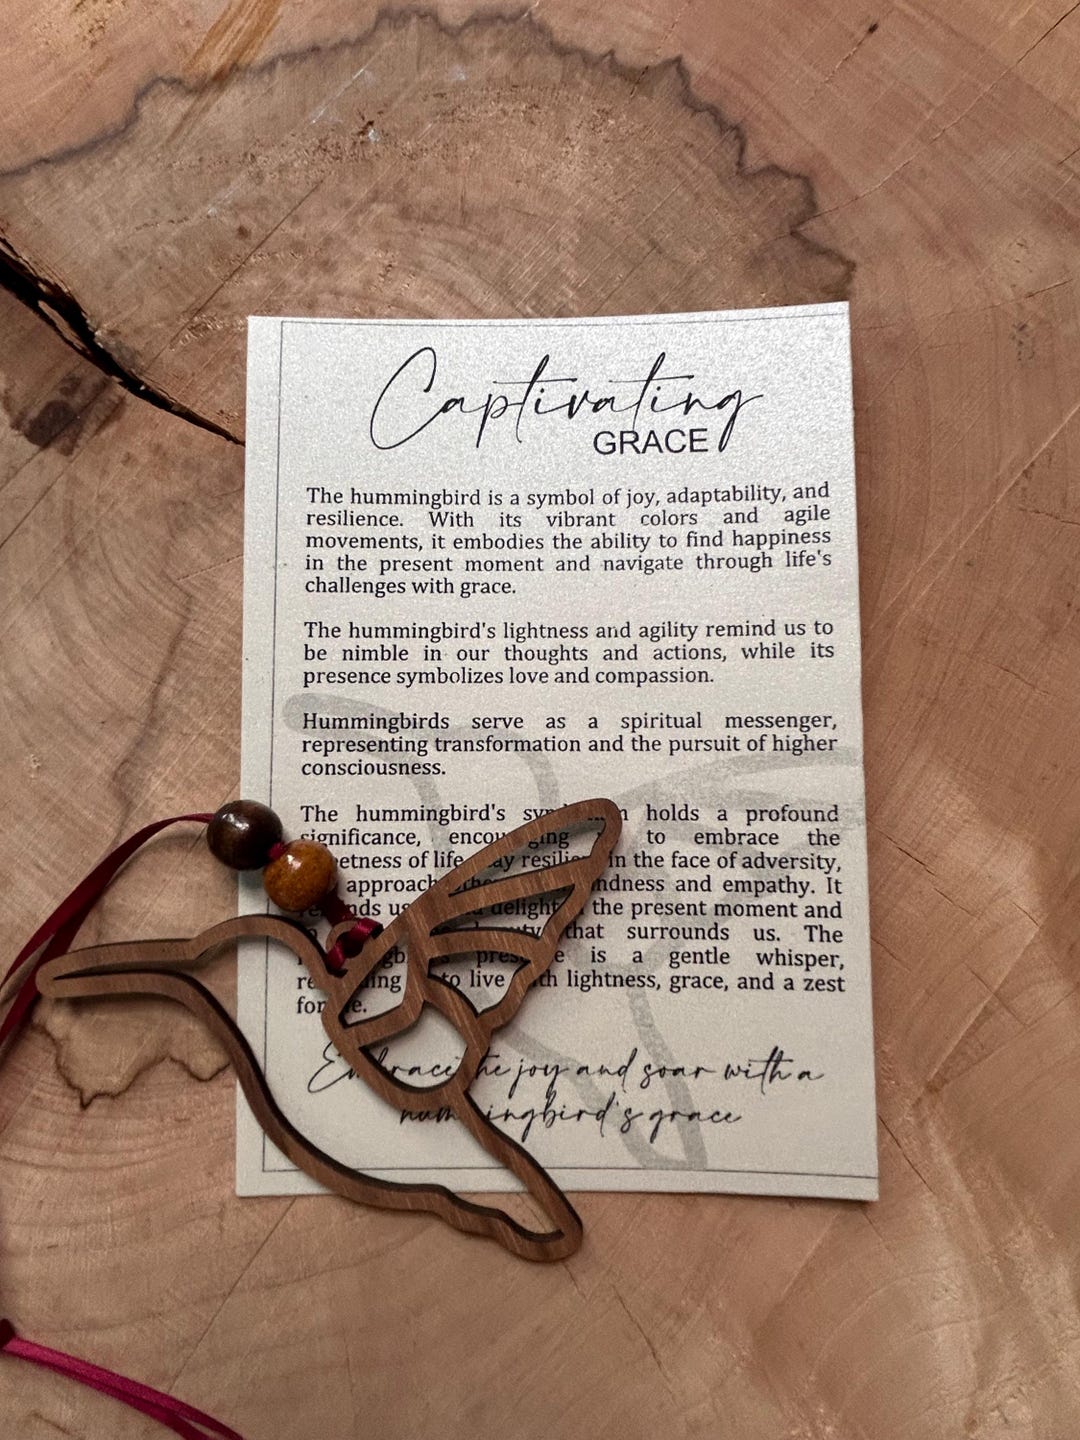 Captivating
GRACE
The hummingbird is a symbol of joy, adaptability, and
resilience. With its vibrant colors and agile
movements, it embodies the ability to find happiness
in the present moment and navigate through life's
challenges with grace.
The hummingbird's lightness and agility remind us to
be nimble in our thoughts and actions, while its
presence symbolizes love and compassion.
Hummingbirds serve as a spiritual messenger,
representing transformation and the pursuit of higher
consciousness.
The hummingbird's holds a profound
significance, encouraging to embrace the
of life, in the face of adversity,
approach and empathy. It
us delight the present moment and
that surrounds us. The
is a gentle whisper,
to live lightness, grace, and a zest
for
Embrace the joy and soar with a
hummingbird's grace